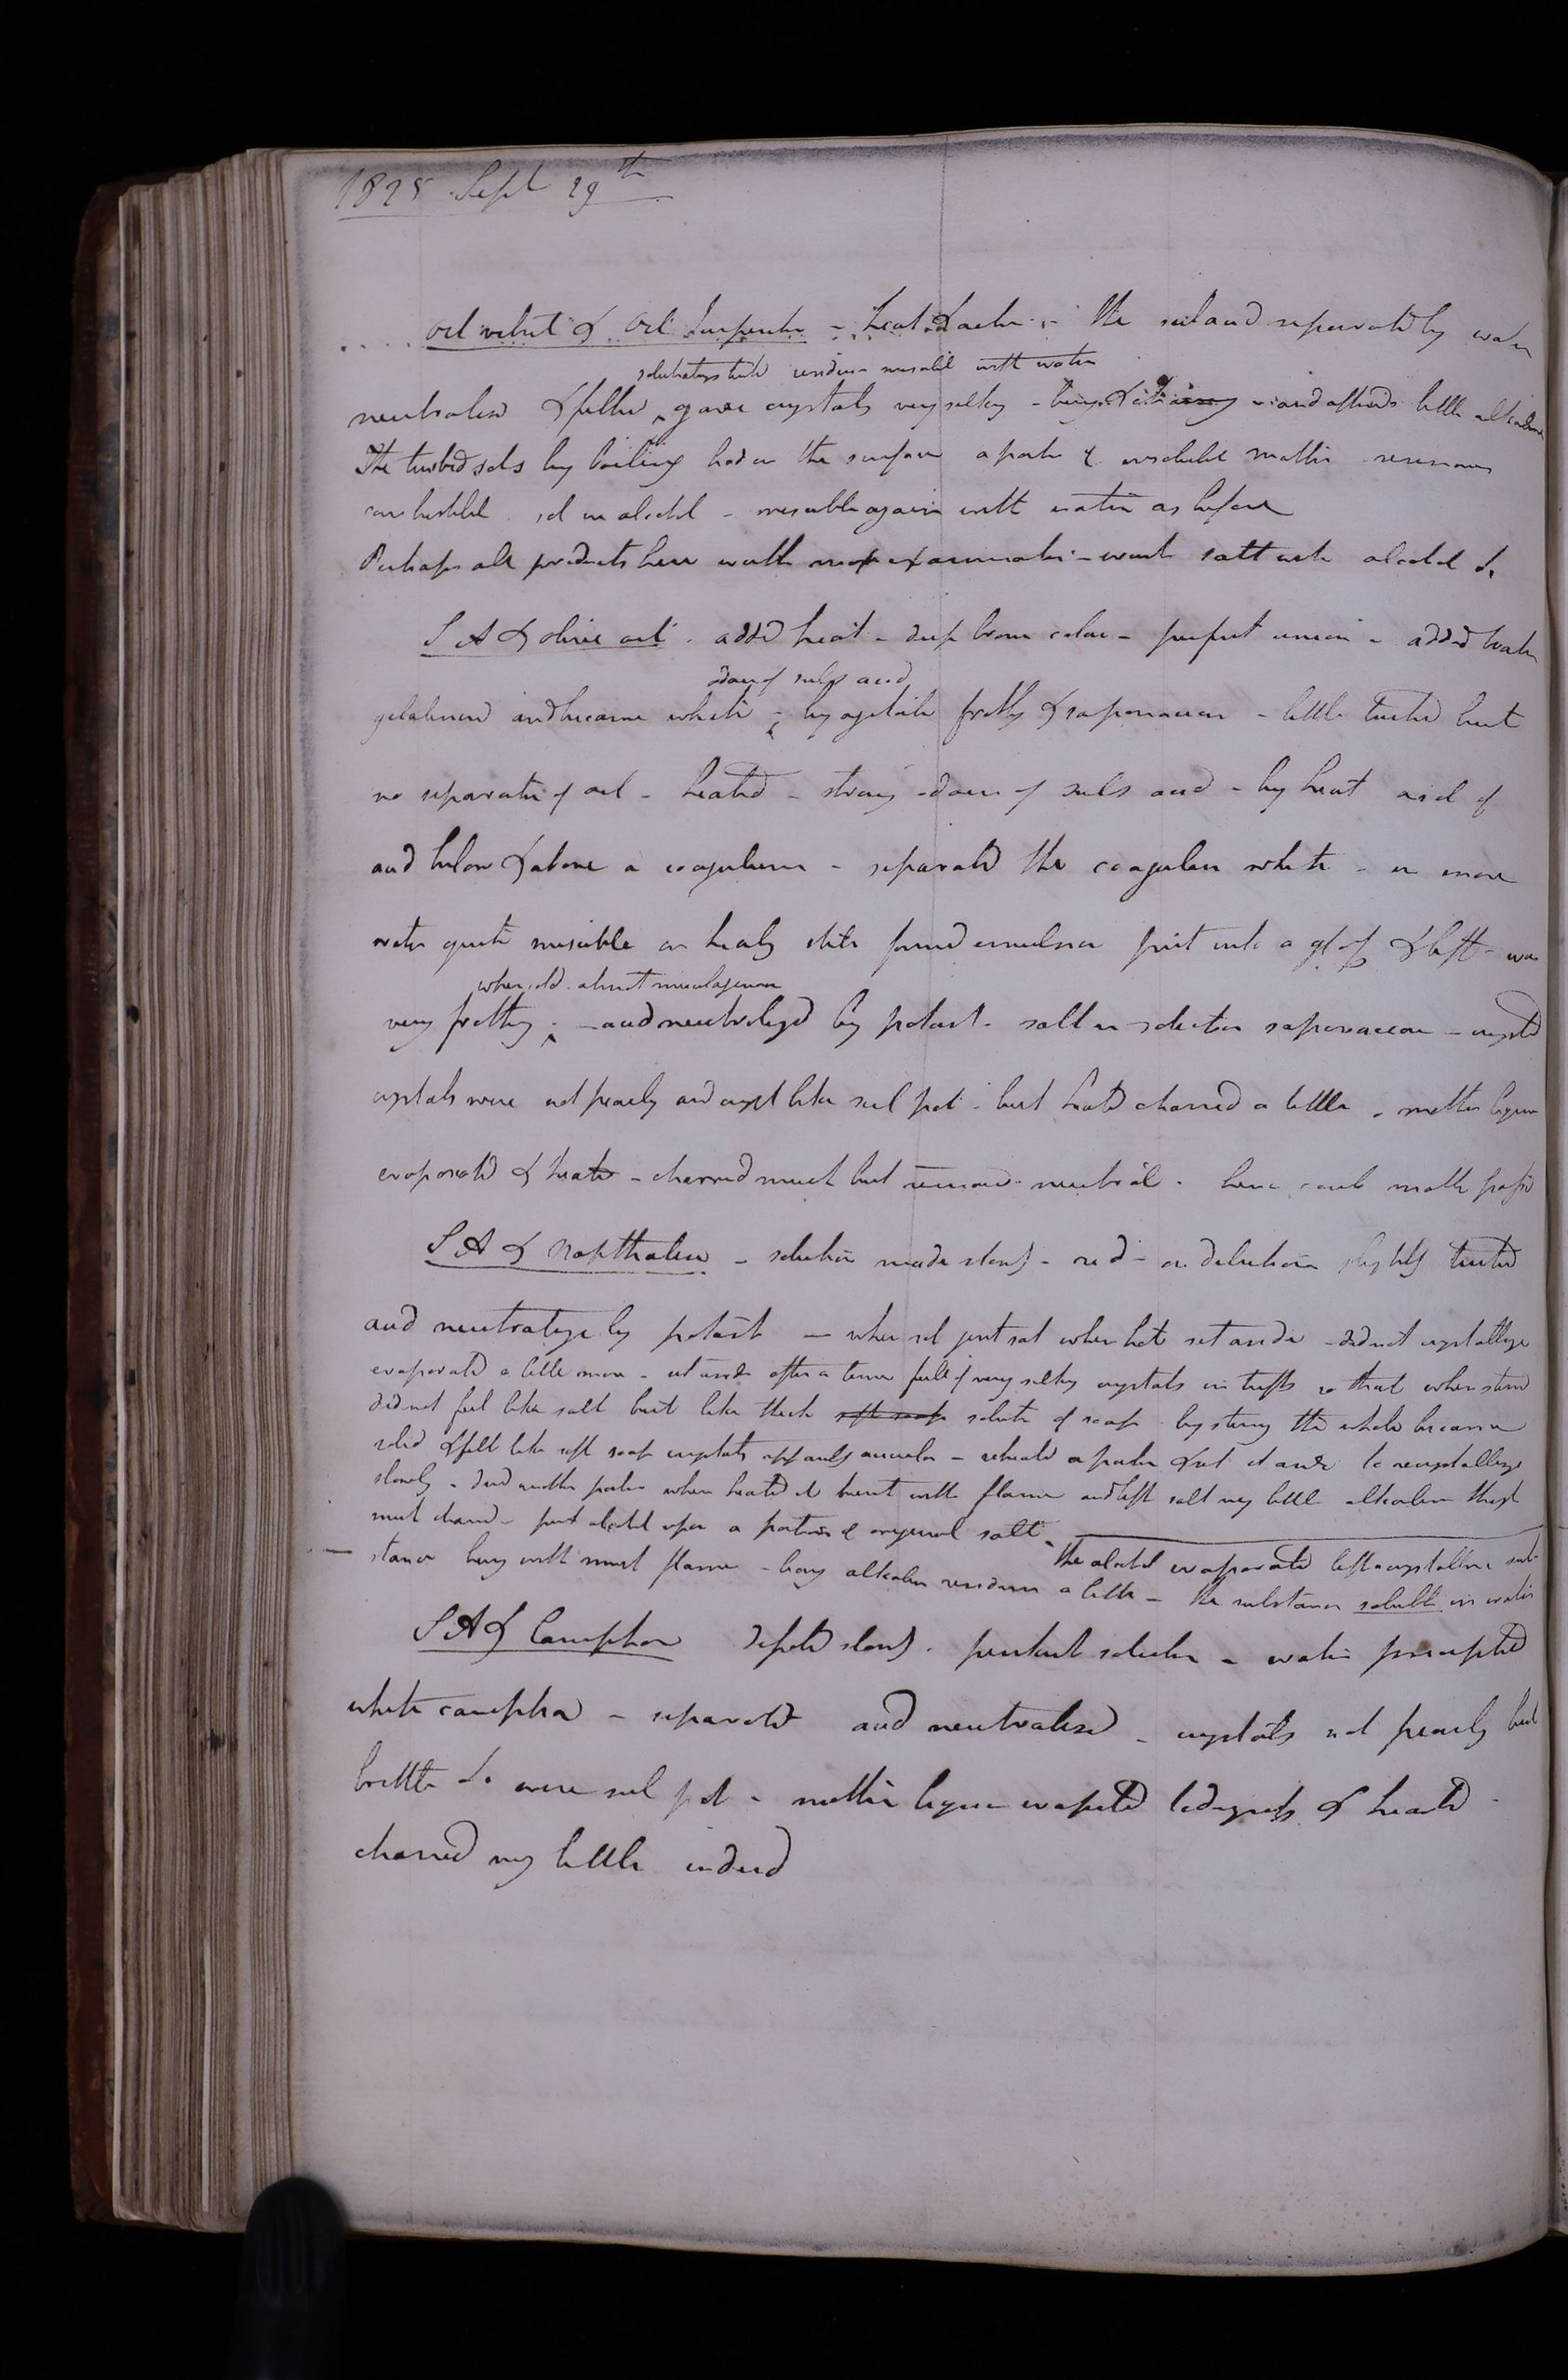 1825 Sept 29th
.... Oil vitriol & Oil Turpentine - heat & action - the sul acid separated by water
solution turbid residue miscible with water
neutralised & filtered gave crystals very silky - and affords little alkaline
The turbid sols by boiling had on the surface a portion of insoluble matter resinous
combustible sol in alcohol - miscible again with water as before
Perhaps all products here worth more examination - wash salt with alcohol &c
S A & olive oil - added heat - deep brown color - perfect union - added water
odour of sulps acid
gelatinous and became white - by agitation frothy & saponaceous - little turbid but
no separation of oil - heated - strong odour of sulps acid - by heat a sol of
acid below & above a coagulum - separated the coagulum white - in more
water quite miscible on heating still formed emulsion put into a & left - was
when cold almost mucilaginous
very frothy - acid neutralized by potash - salt in solution saponaceous - crystd
crystals were not pearly and cryst like sul pot - but heated charred a little - mother liquor
evaporated & heated - charred much but remained neutral - hence comb matter
S A & Napthaline - solution made slowly - red - on dilution slightly turbid
and neutralize by potash - when sol just sat when hot set aside - did not crystallize
evaporated a little more - set aside after a time full of very silky crystals in tufts so that when stirred
did not feel like salt but like thick soft soap solution of soap - by stirring the whole became
solid & felt like soft soap crystals apparently acicular - reheated a portion & set it aside to recrystallize
slowly - dried another portion when heated it burnt with flame and left salt very little alkaline though
much charred - put alcohol upon a portion of original salt -
the alcohol evaporated left a crystalline sub-
- stance burning with much flame - leaving alkaline residuum a little - the substance soluble in water
S A & Camphor - slowly - solution - water precipitated
white camphor - separated acid neutralised - crystals not pearly but
brittle & were sul pot - mother liquor evaporated to dryness & heated -
charred very little indeed